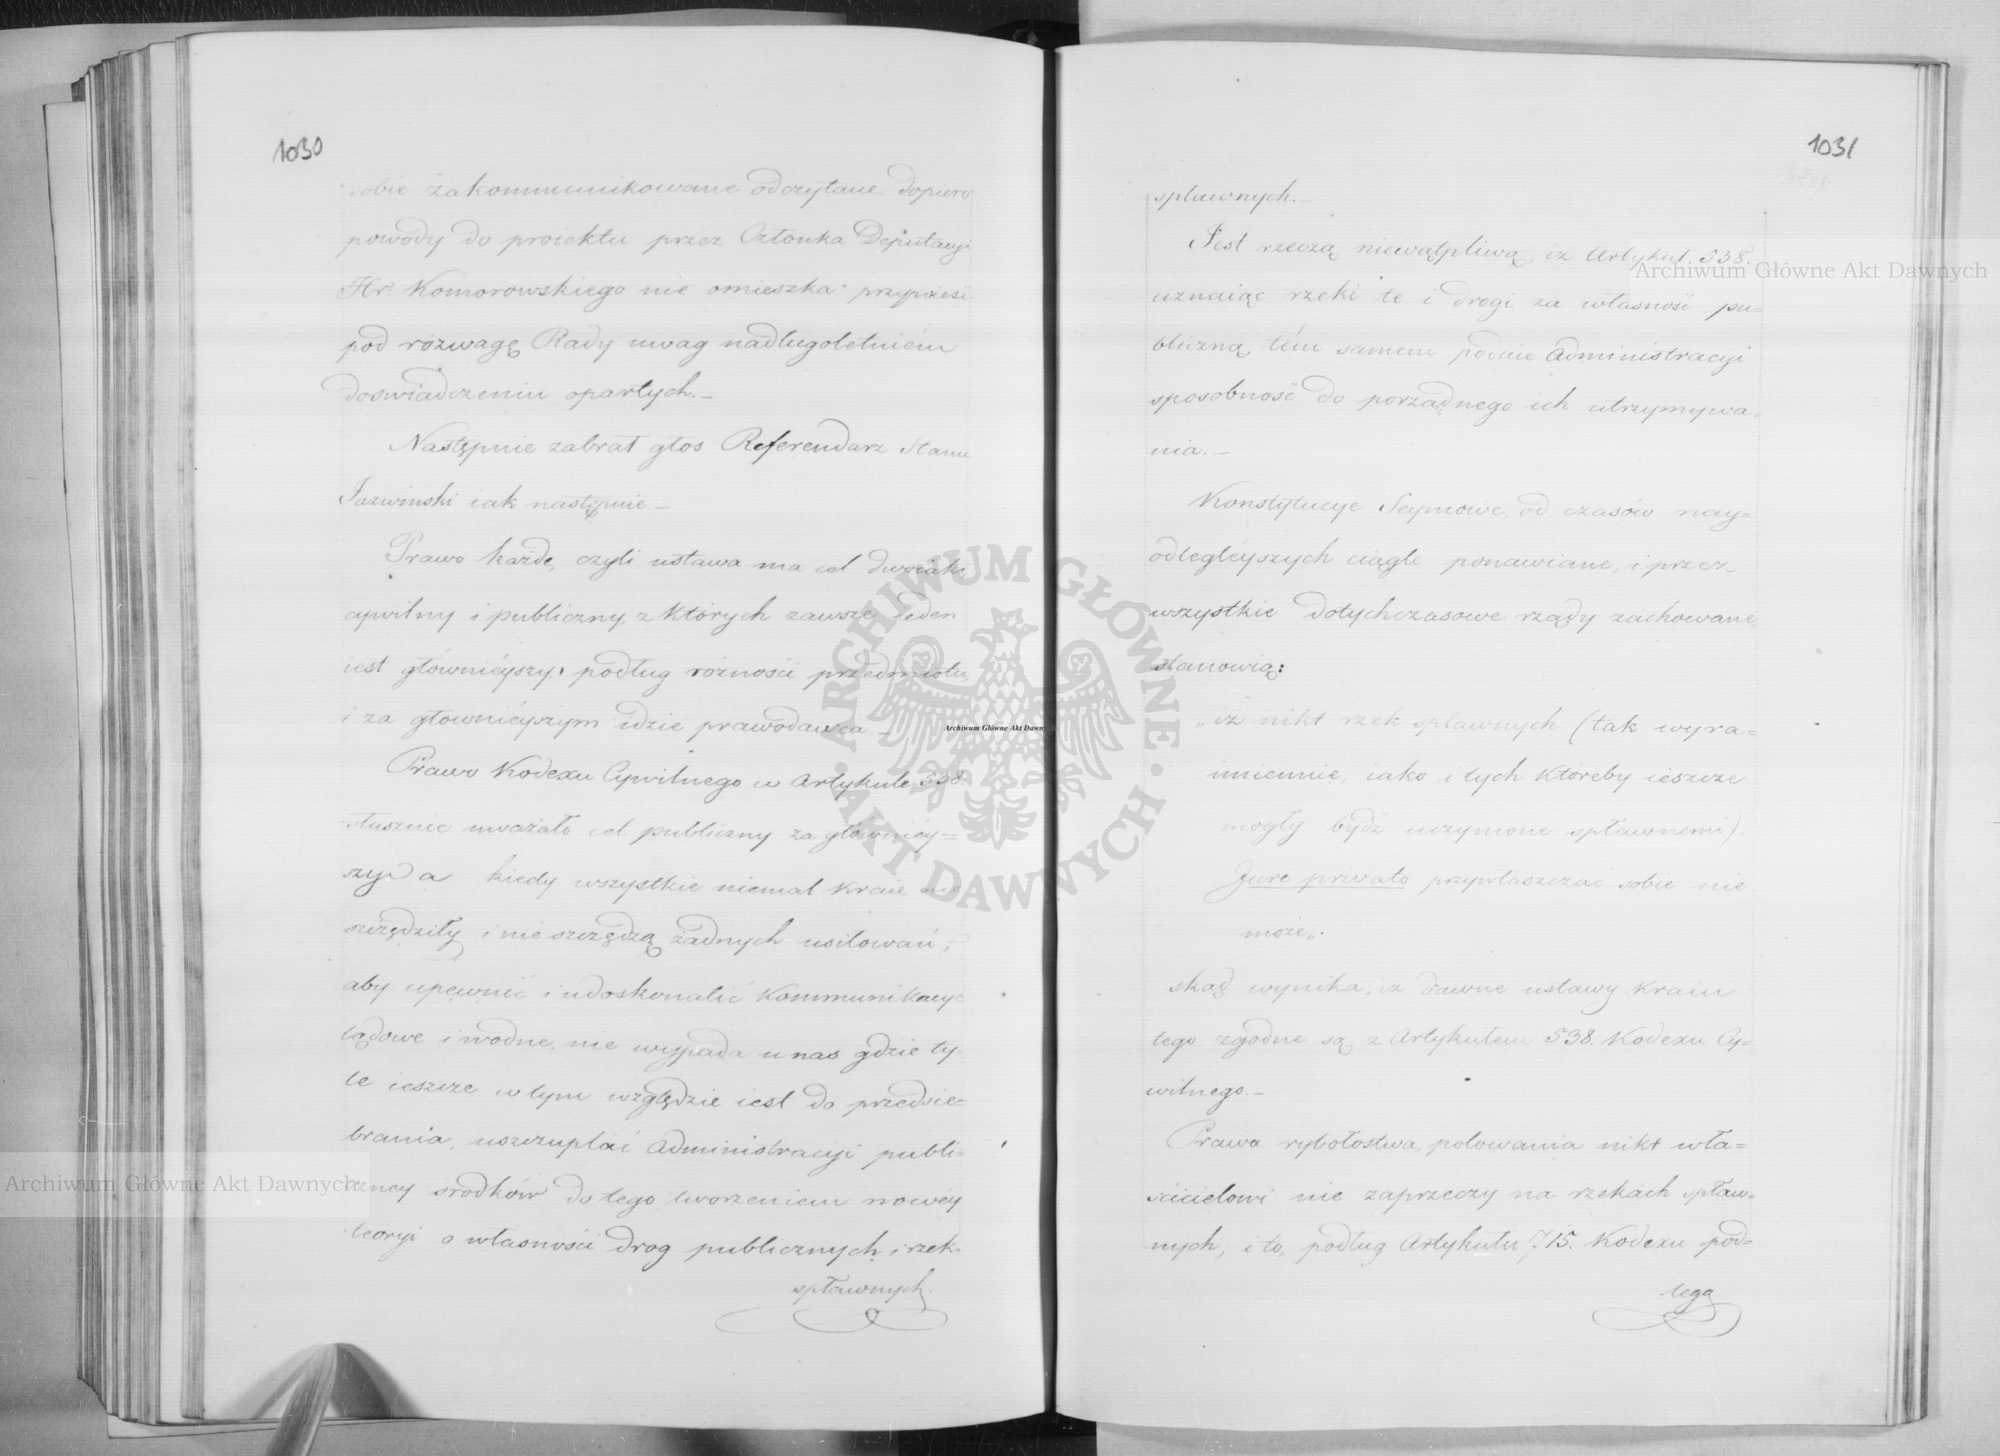 1030
sobie zakommunikowane odczytane dopiero
powody do proiektu przez Członka Deputacyi
Hr. Komorowskiego nie omieszka przynieść
pod rozwagę Rady uwag na długoletniém
doświadczeniu opartych.—
Następnie zabrał głos Referendarz Stanu
Jazwinski iak następuie.—
Prawo każde, czyli ustawa ma cel dwoiaki,
cywilny i publiczny, z których zawsze ieden
iest główniéyszy, podług różności przedmiotu,
i za głowniéyszym idzie prawodawca.—
Prawo Kodexu Cywilnego w Artykule 538.
słusznie uważało cel publiczny za głównéy=
szy a kiedy wszystkie niemal kraie nie
szczędziły i nie szczędzą żadnych usiłowań,
aby upewnić i udoskonalić Kommunikacye
lądowe i wodne, nie wypada u nas gdzie ty-
le ieszcze w tym względzie iest do przedsię-
brania, uszczuplać Administracyi publi-
czney srodków do tego tworzeniem nowéy
teoryi o własności drog publicznych i rzek
spławnych.
1031
spławnych.—
Jest rzeczą niewątpliwą, iż Artykuł 538.
uznaiąc rzeki te i drogi za własność pu=
bliczną tém samem podaie Administracyi
sposobność do porządnego ich utrzymywa=
nia.—
Konstytucye Seymowe, od czasów nay=
odległéyszych ciągle ponawiane, i przez
wszystkie dotychczasowe rządy zachowane,
stanowią:
„iż nikt rzek spławnych (tak wyra=
imiennie, iako i tych któreby ieszcze
mogły bydź uczynione spławnemi).
Jure privato przywłaszczać sobie nie
może„.
skąd wynika, iż dawne ustawy kraiu
tego zgodne są z Artykułem 538. Kodexu Cy=
wilnego.—
Prawa rybołostwa, polowania nikt wła=
ścicielowi nie zaprzeczy na rzekach spław=
nych; i to, podług Artykułu 715. Kodexu pod=
lega
Archiwum Główne Akt Dawnych
Archiwum Główne Akt Dawnych
Archiwum Główne Akt Dawnych
ARCHIWUM GŁÓWNE · AKT DAWNYCH ·